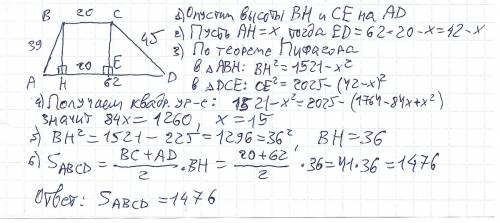 B 20 C
39
45
A H 20 E 62 D
1) Опустим высоты BH и CE на AD
2) Пусть AH=x, тогда ED=62-20-x=42-x
3) По теореме Пифагора
в ΔABH: BH²=1521-x²
в ΔDCE: CE²=2025-(42-x)²
4) Получаем квадр. ур-е: 1521-x²=2025-(1764-84x+x²)
значит 84x=1260, x=15
5) BH²=1521-225=1296=36², BH=36
6) S_ABCD = (BC+AD)/2 · BH = (20+62)/2 · 36=41·36=1476
Ответ: S_ABCD = 1476